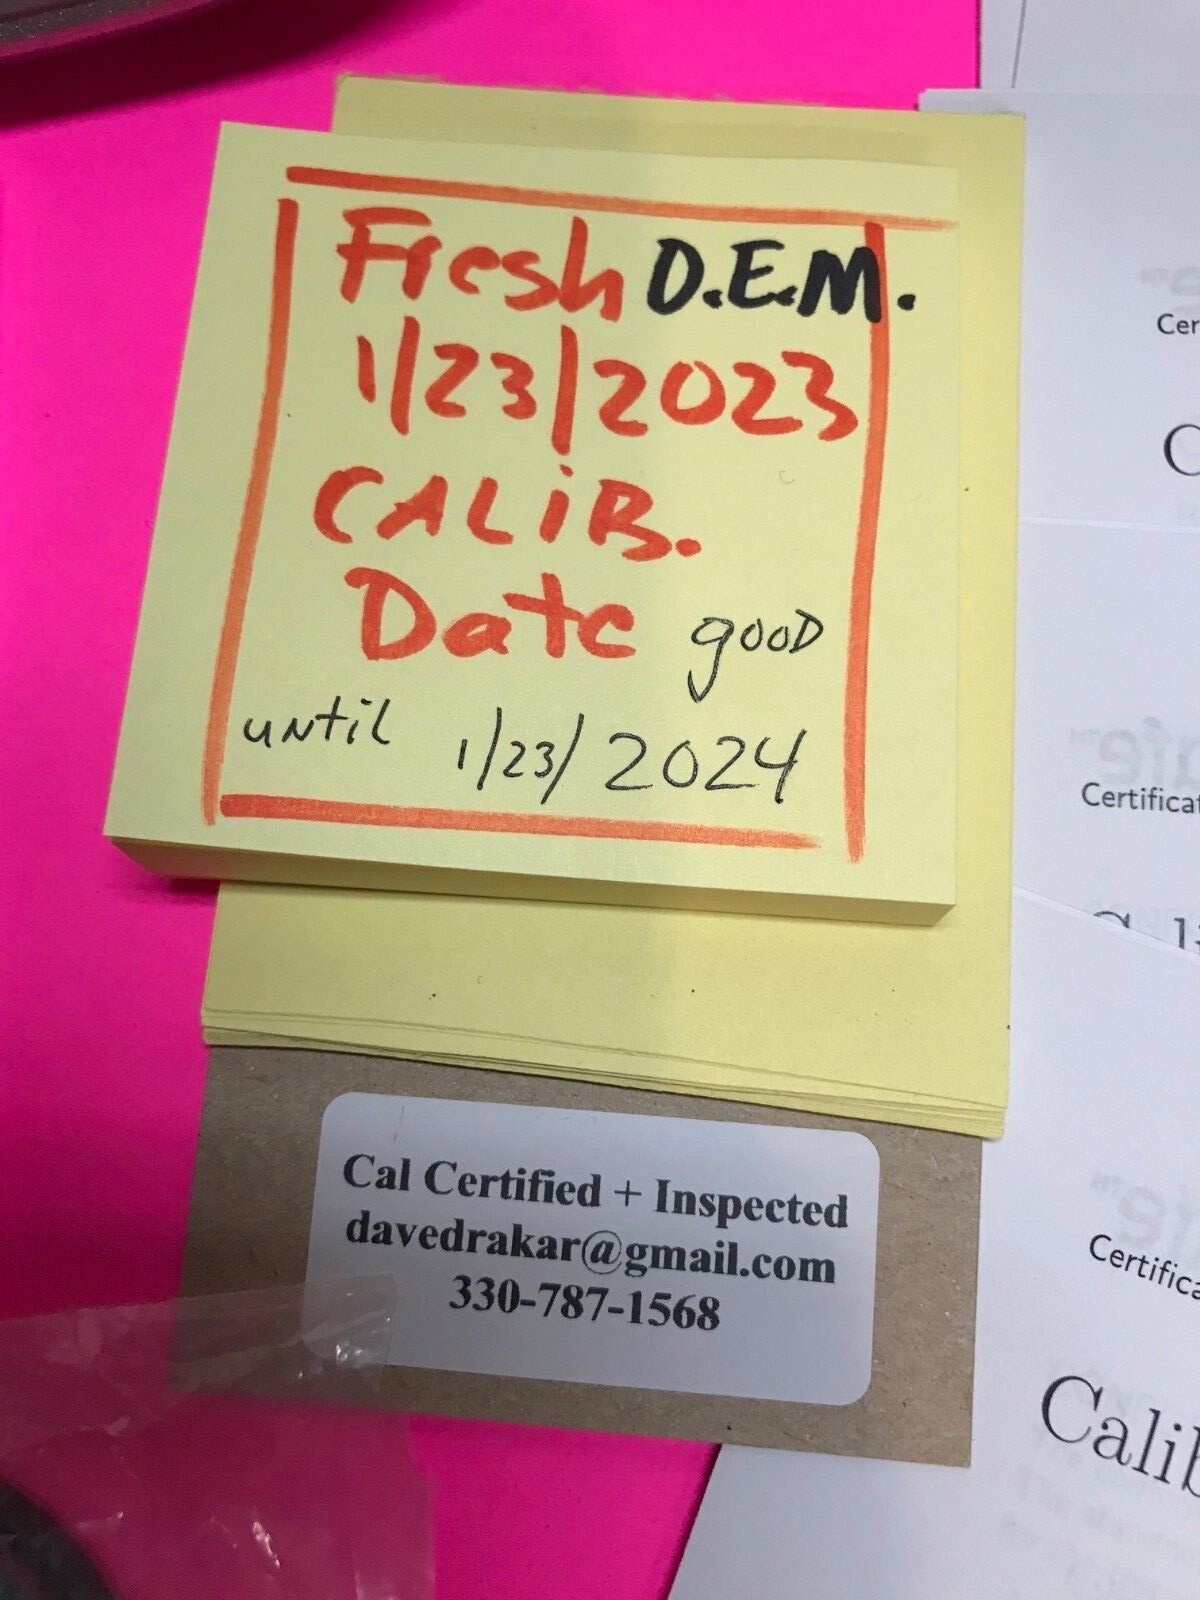 Fresh O.E.M.
1/23/2023
CALiB.
Date good
until 1/23/2024
Cal Certified + Inspected
davedrakar@gmail.com
330-787-1568
Cer
C
Certificat
Certifica
Calib